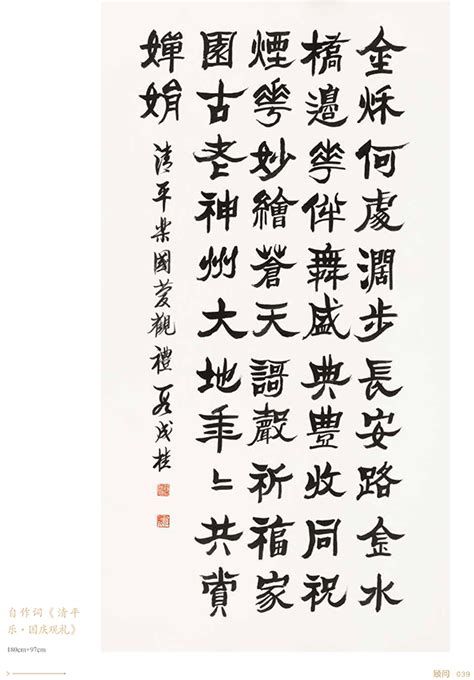 金秌何處濶步長安路金水
橋邊華伴舞盛典豐收同祝
煙華妙繪蒼天謌聲祈福家
園古老神州大地年〻共賞
嬋娟
清平樂國慶觀禮 成桂
自作词《清平
乐·国庆观礼》
180cm×97cm
顾问 039